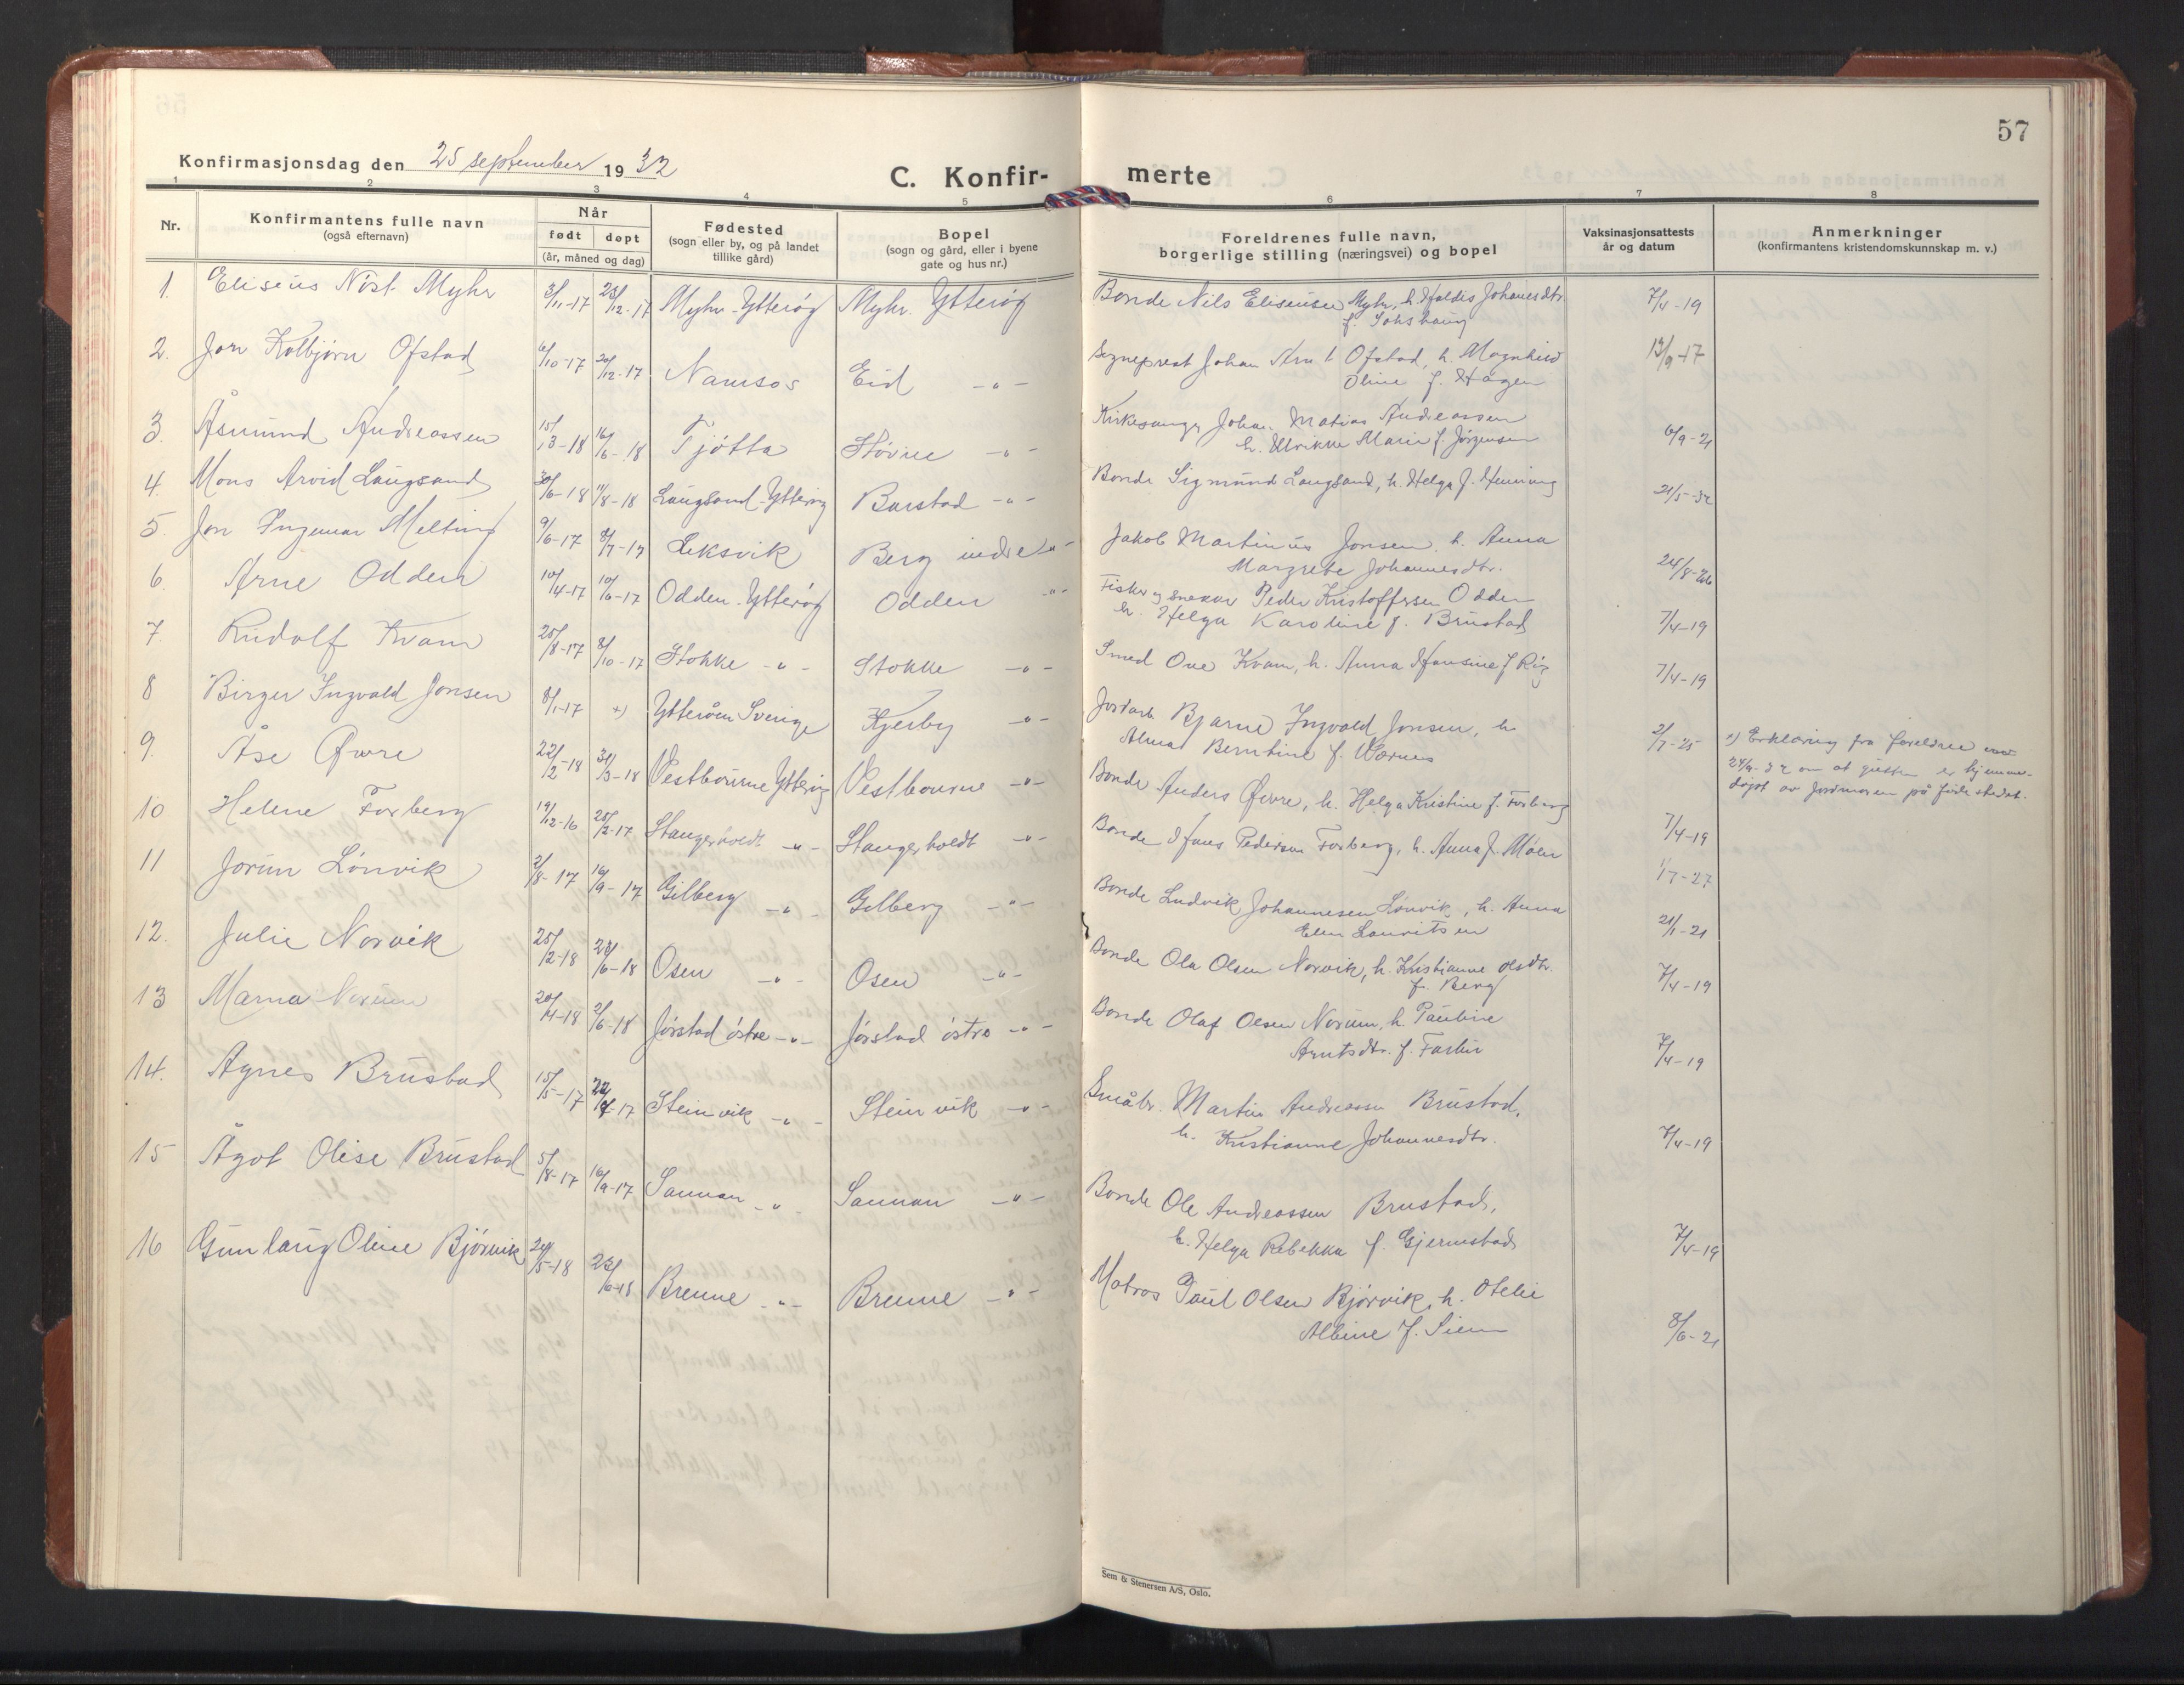 57
Konfirmasjonsdag den 25 september 1932
C. Konfir- merte
1 2 3 4 5 6 7 8
Nr.
Konfirmantens fulle navn
(også efternavn)
Når
født døpt
(år, måned og dag)
Fødested
(sogn eller by, og på landet
tillike gård)
Bopel
(sogn og gård, eller i byene
gate og hus nr.)
Foreldrenes fulle navn,
borgerlige stilling (næringsvei) og bopel
Vaksinasjonsattests
år og datum
Anmerkninger
(konfirmantens kristendomskunnskap m. v.)
1. Eliseus Nöst Myhr 3/11-17 23/12-17 Myhr Ytterøy Myhr Ytterøy Bonde Nils Eliseusen Myhr, h. Haldis Johanesdtr 7/4-19
2. Jon Kolbjørn Ofstad 6/10-17 20/12-17 Namsos Eid -"- Sogneprest Johan Arnt Ofstad, h. Magnhild 13/9-17
Oline f. Hagen
3. Åsmund Andreassen 15/3-18 16/6-18 Tjøtta Høvne -"- Kirkesanger Johan Matias Andreassen
h. Ulrikke Marie f. Jörgensen 6/9-21
4. Mons Arvid Laugsand 30/6-18 11/8-18 Laugsand Ytterøy Barstad -"- Bonde Sigmund Laugsand, h. Helga f. Henning 21/5-32
5. Jon Ingemar Melting 9/6-17 8/7-17 Leksvik Berg indre -"- Jakob Martinus Jonsen, h. Anna
Margrete Johannesdtr. 24/8-26
6. Arne Odden 10/4-17 10/6-17 Odden Ytterøy Odden -"- Fisker og snekker Peder Kristoffersen Odden
h. Helga Karoline f. Brustad 7/4-19
7. Rudolf Kvam 25/8-17 8/10-17 Stokke -"- Stokke -"- Smed Ove Kvam, h. Anna Hansine f. 7/4-19
8 Birger Ingvald Jonsen 8/1-17 x) Ytteråen Sverige Kjerby -"- Jordarb. Bjarne Ingvald Jonsen, h.
Alma Berntine f. Wærnes 2/7-25 x) Erklæring fra foreldrene
24/9-32 om at er hjemme-
døpt av jordmoren på fødestedet.
9. Åse Øvre 22/2-18 31/3-18 Vestbourne Ytterøy Vestbourne -"- Bonde Anders Øvre, h. Helga Kristine f. Forberg 7/4-19
10 Helene Forberg 19/12-16 25/2-17 Stangerholdt -"- Stangerholdt -"- Bonde Hans Pedersen Forberg, h. Anna f. Moen 1/7-27
11 Jorun Lönvik 2/8-17 16/9-17 Gilberg -"- Gilberg -"- Bonde Ludvik Johannesen Lönvik, h. Anna
Elen Lauritsen 21/1-21
12. Julie Norvik 25/2-18 23/6-18 Osen -"- Osen -"- Bonde Ola Olsen Norvik, h. Kristianne Olsdtr.
f. Berg 7/4-19
13 Marna Norum 20/4-18 2/6-18 Jörstad östre -"- Jörstad östre -"- Bonde Olaf Olsen Norum, h. Pauline
Arntsdtr. f. 7/4-19
14. Agnes Brustad 15/5-17 22/7-17 Steinvik -"- Steinvik -"- Småbr. Martin Andreassen Brustad,
h. Kristianne Johannesdtr. 7/4-19
15 Ågot Olise Brustad 5/8-17 16/9-17 Sannan -"- Sannan -"- Bonde Ole Andreassen Brustad,
h. Helga Rebekka f. Gjermstad 7/4-19
16 Gunlaug Oline Bjørvik 20/5-18 23/6-18 Brenne -"- Brenne -"- Matros Paul Olsen Bjørvik, h. Otelie
Albine f. Siem 8/6-21
Sem & Stenersen A/S, Oslo.